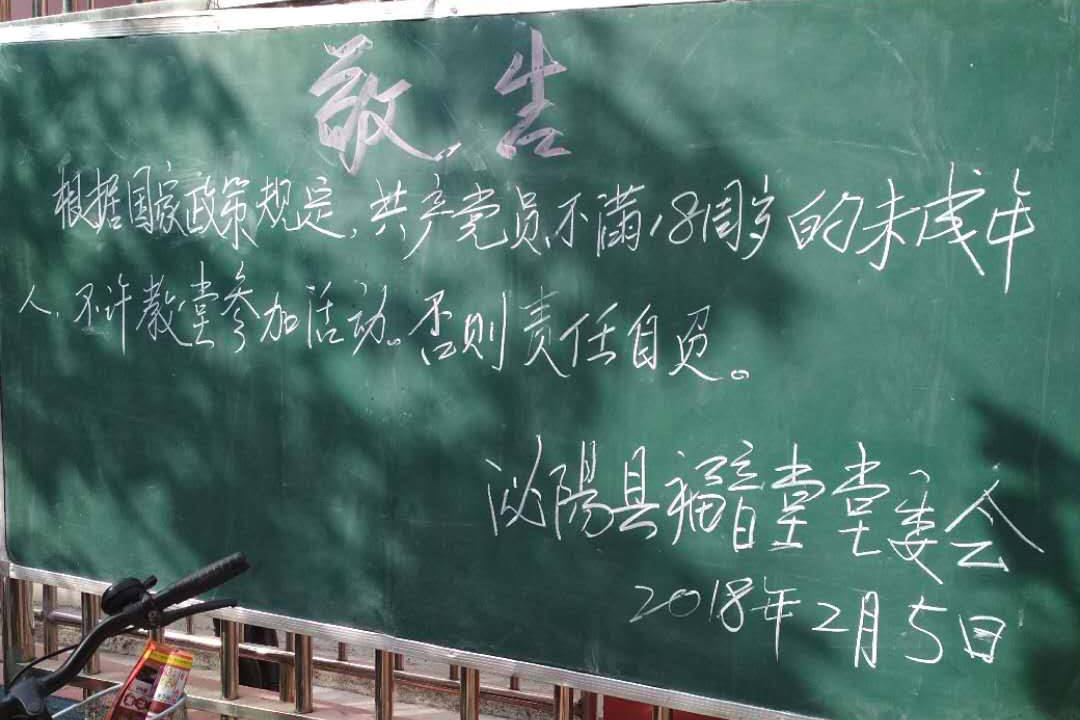 敬告
根据国家政策规定,共产党员、不满18周岁的未成年
人,不许教堂参加活动。否则责任自负。
泌阳县福音堂堂委会
2018年2月5日